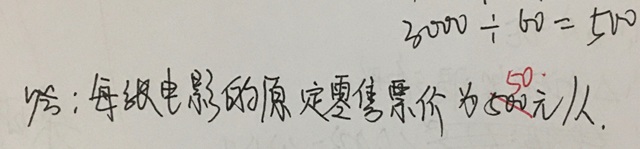 3000÷60=500
答:每张电影的原定零售票价为500元/人.
50.